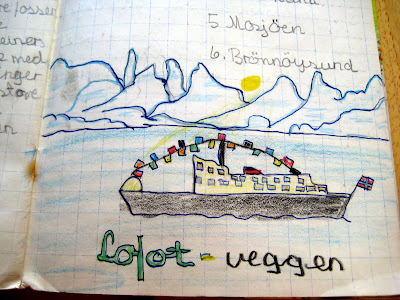 fosser
einers
med
nger
store
5. Mosjöen
6. Brönnöysund
Lofot-veggen